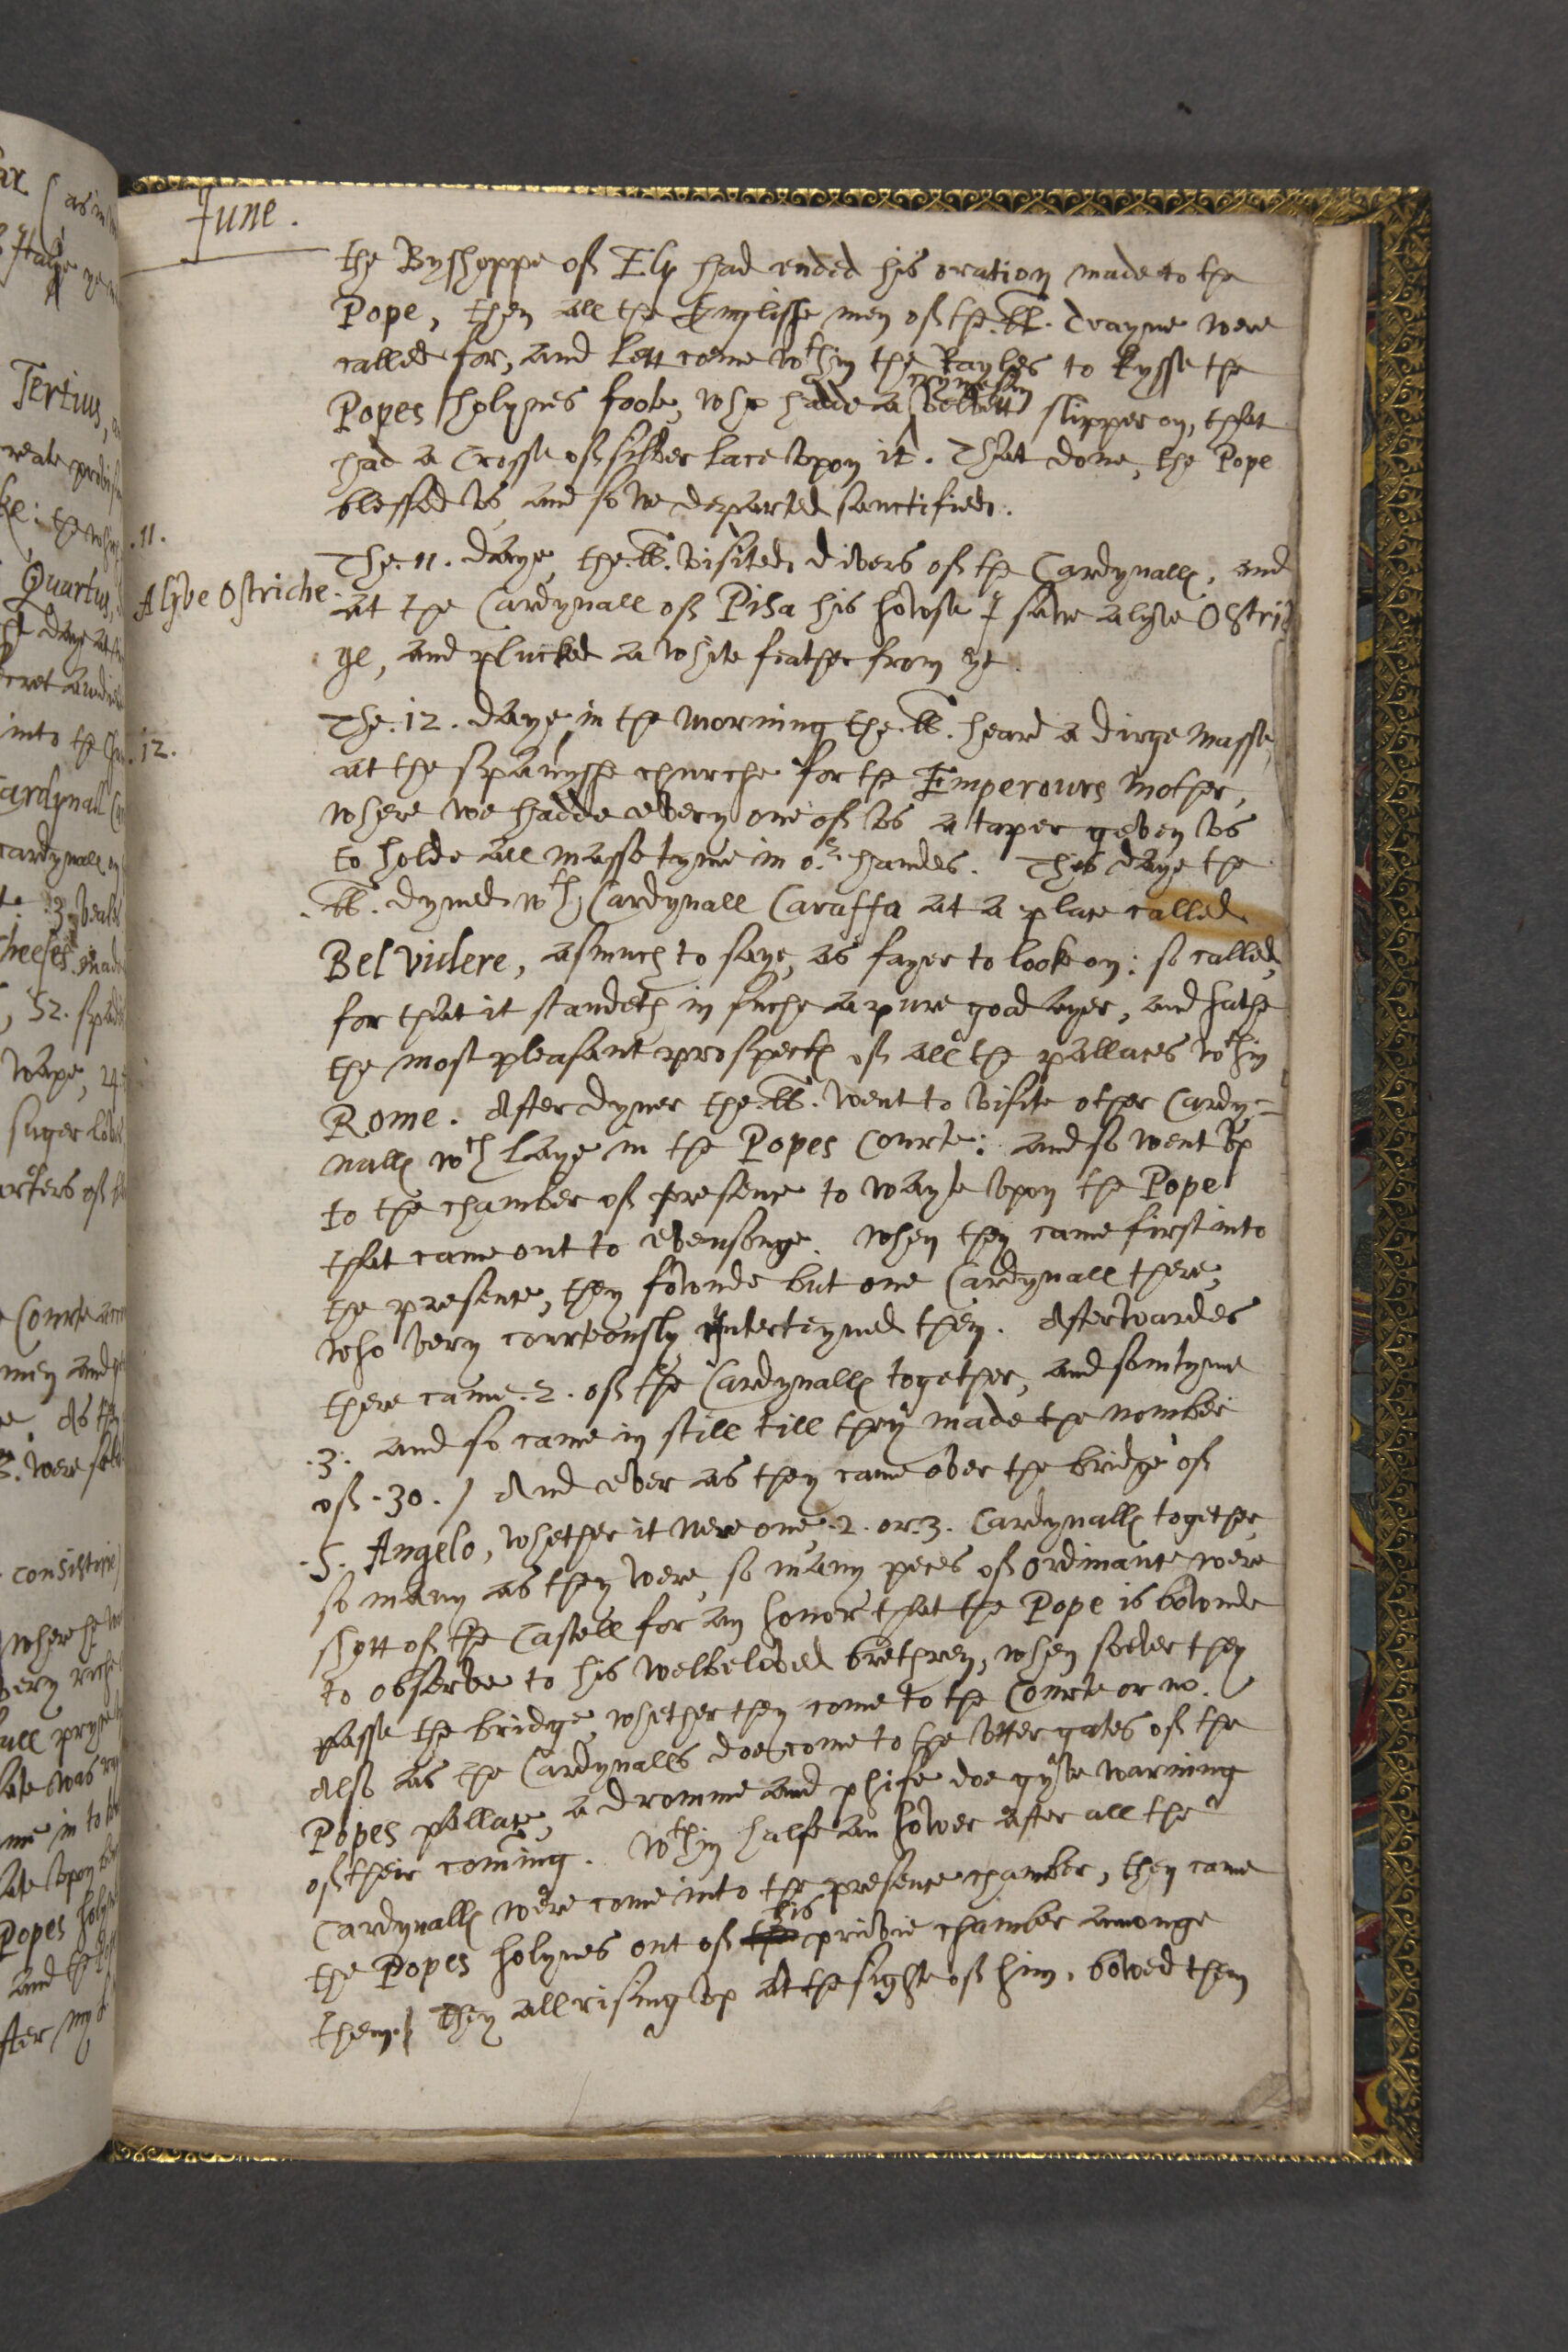 June.
the Bysshoppe of Ely had ended his oration made to the
Pope, then all the Englisshe men of the .LL. trayne were
called for, and lett come wthin the Rayles to kysse the
crymesin
Popes holynes foote, who hadde a vellvett slipper on, that
had a Crosse of silver lace upon it. That done, the Pope
blessed us, and so we departed sanctified.
.11.
The .11. daye the .LL. visited divers of the Cardynalls, and
Alyve Ostriche
at the Cardynall of Pisa his howse I sawe alyve Ostri
ge, and plucked a white feather from ye.
.12.
The .12. daye in the morning the .LL. heard a dirge masse
at the spanyshe churche for the Emperours mother,
where we hadde every one of us a taper geven us
to holde all masse tyme in or handes. This daye the
.LL. dyned wth Cardynall Caraffa at a place called
Belvidere, asmuch to saye, as fayer to looke on: so called,
for that it standeth in suche a pure good ayer, and hathe
the most pleasant prospecte of all the pallaces wthin
Rome. After dyner the .LL. went to visite other Cardy=
nalls wch laye in the Popes Courte: and so went up
to the chamber of presence to wayte upon the Pope
that came out to evensonge. When they came first into
the presence, they fownde but one Cardynall there,
who very courteously intertayned them. Afterwardes
there came .2. of the Cardynalls together, and somtyme
.3. and so came in still till they made the nomber
of .30. / And ever as they came over the bridge of
.S. Angelo, whether it were one .2. or .3. Cardynalls together,
so many as they were, so many peces of ordinance were
shott of the Castell for an honor that the Pope is bownde
to observe to his welbeloved brethren, when soever they
passe the bridge, whether they come to the Courte or no. /
Also as the Cardynalls doe come to the utter gates of the
Popes pallace, a dromme and phife doe gyve warning
of their coming. Wthin halfe an hower after all the
Cardynalls were come into the presence chamber, then came
his
the Popes holynes out of the privie chamber amonge
them. / They all rising up at the sighte of him, bowed them